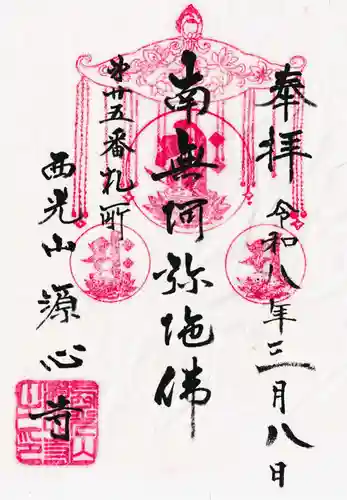 奉拝
令和八年三月八日
南無阿弥陀佛
第廿五番札所
西光山
源心寺